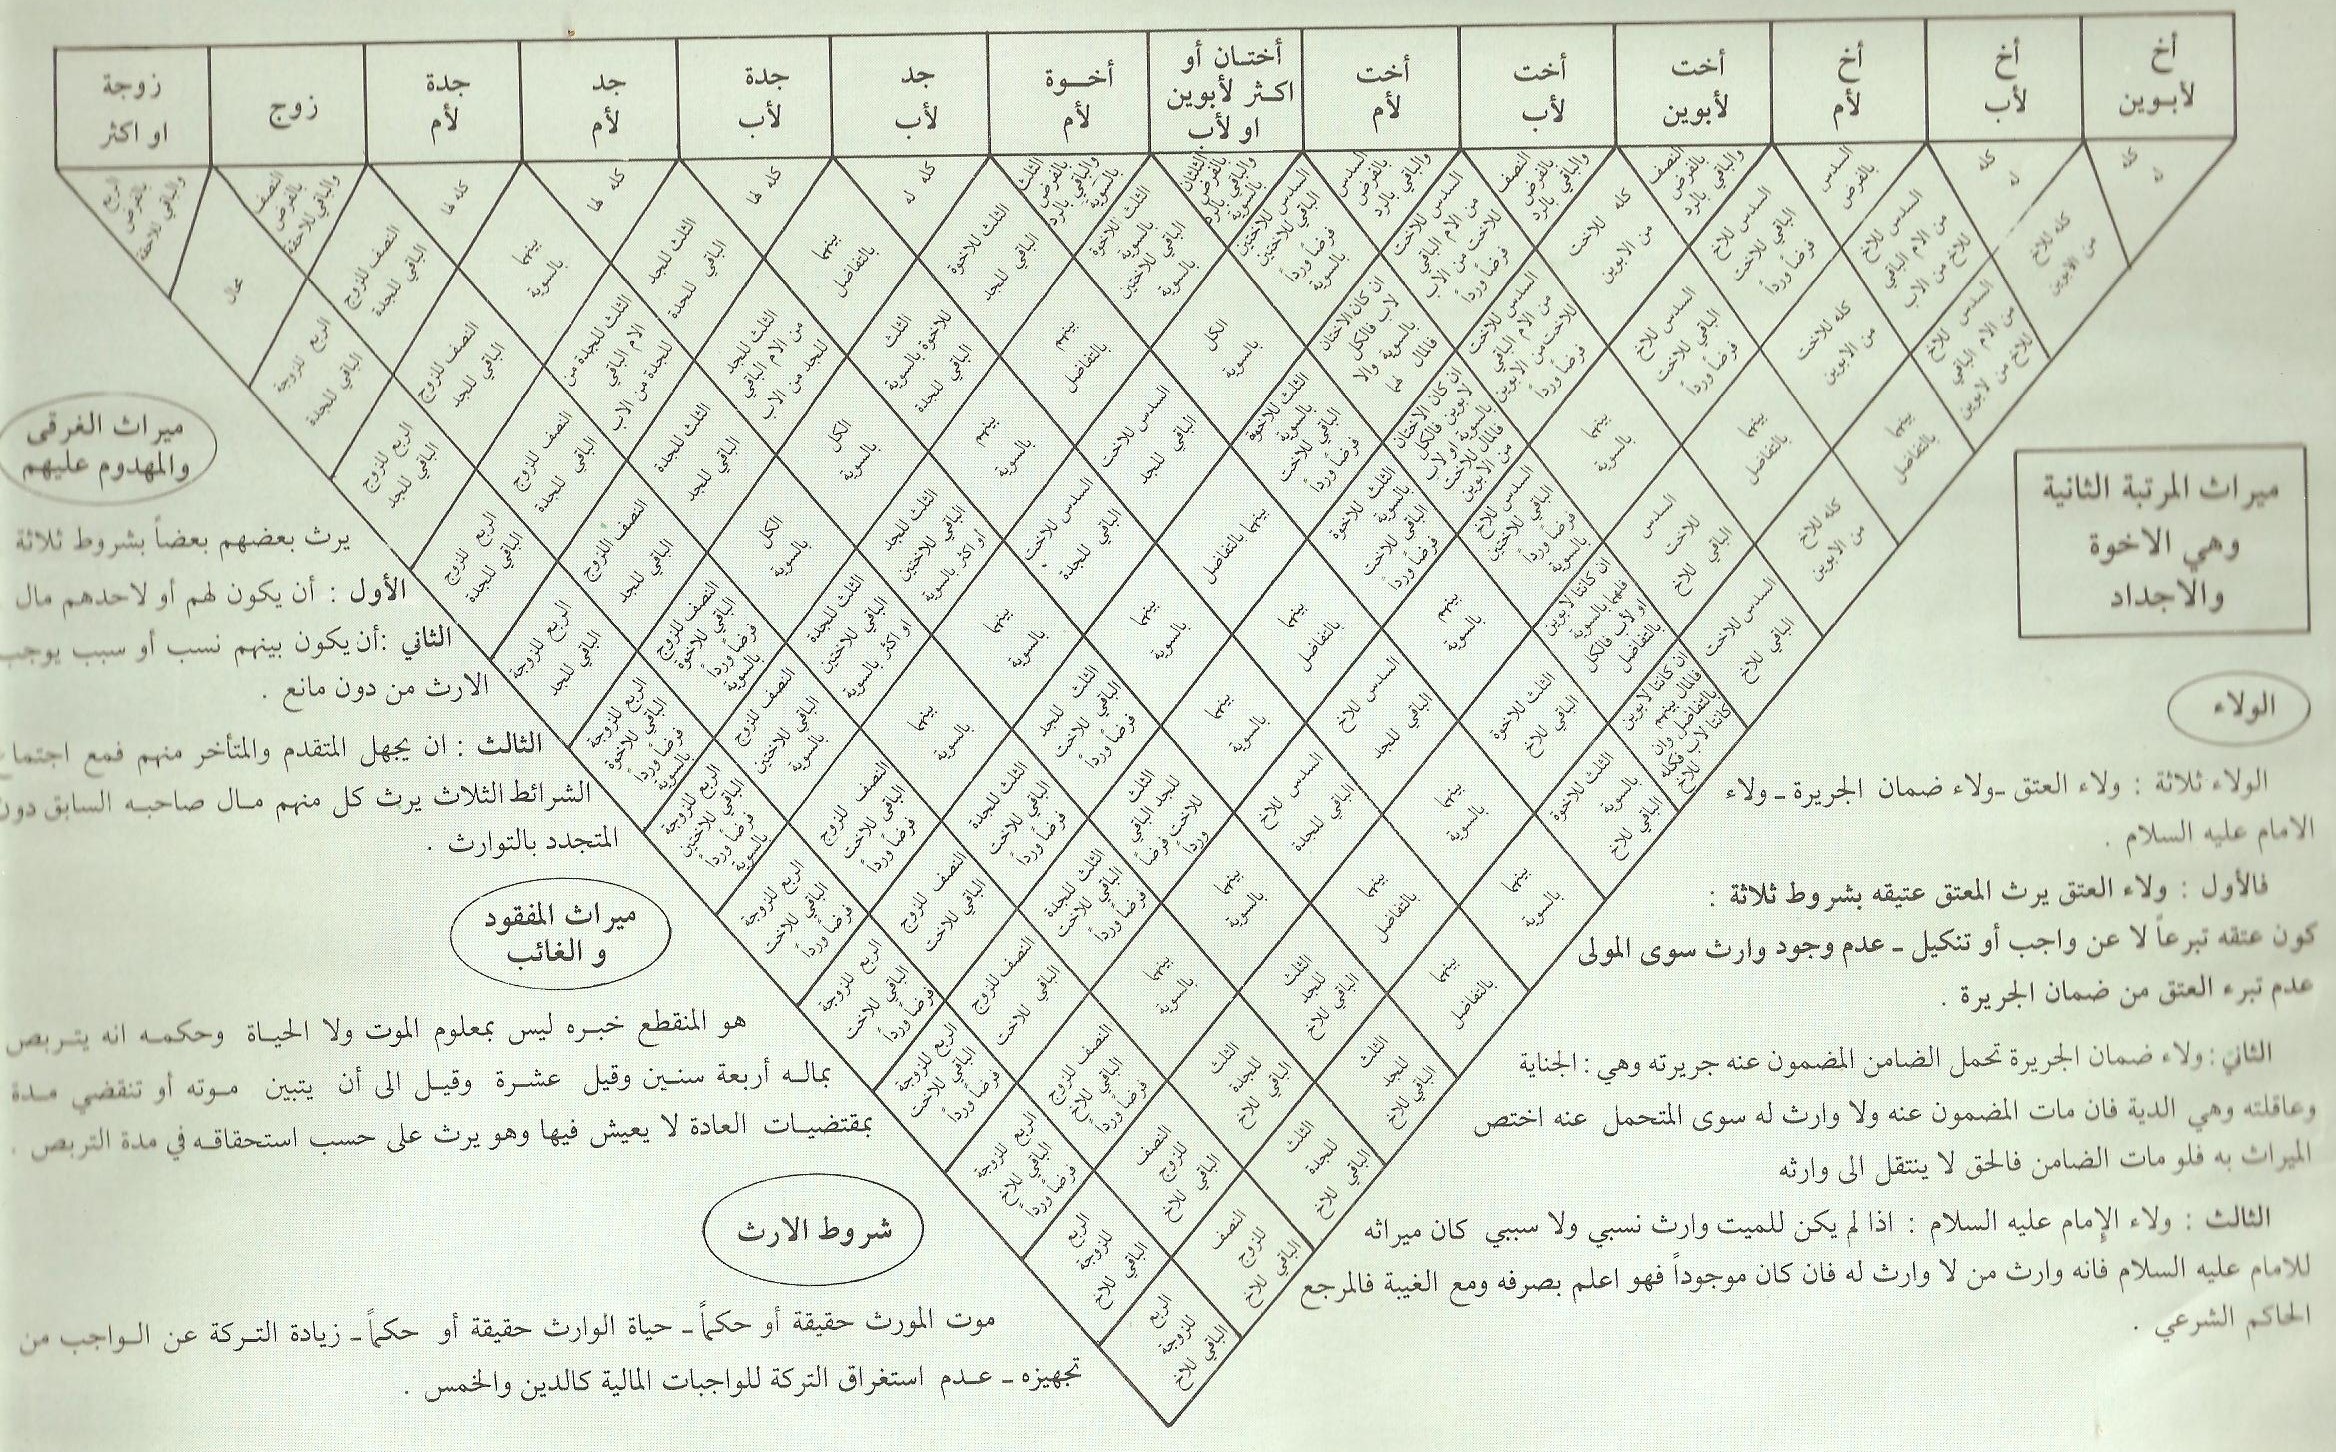 أخ لأبوين
أخ لأب
أخ لأم
أخت لأبوين
أخت لأب
أخت لأم
أختان أو اكثر لأبوين او لأب
أخوة لأم
جد لأب
جدة لأب
جد لأم
جدة لأم
زوج
زوجة او اكثر
كله له
كله له
السدس بالفرض
النصف بالفرض والباقي بالرد
النصف بالفرض والباقي بالرد
السدس بالفرض والباقي بالرد
الثلثان بالفرض والباقي بالرد بالسوية
الثلث بالفرض والباقي بالرد بالسوية
كله له
كله لها
كله لها
كله لها
النصف بالفرض والباقي للاحقة
الربع بالفرض والباقي للاحقة
كله للاخ من الابوين
السدس للاخ من الام الباقي للاخ من الاب
السدس للاخ الباقي للاخت فرضاً ورداً
كله للاخت من الابوين
السدس للاخت من الام الباقي للاخت من الاب فرضاً ورداً
السدس للاختين الباقي للاختين فرضاً ورداً بالسوية
الثلث للاخوة بالسوية الباقي للاختين بالسوية
الثلث للاخوة الباقي للجد
بينهما بالتفاضل
الثلث للجد الباقي للجدة
بينهما بالسوية
النصف للزوج الباقي للجدة
محال
السدس للاخ من الام الباقي للاخ من لابوين
كله للاخت من الابوين
السدس للاخ الباقي للاخت فرضاً ورداً
السدس للاخت من الام الباقي للاخت من الابوين فرضاً ورداً
ان كان الاختان لاب فالكل بالسوية والا فالمال لهما
الكل بالسوية
بينهم بالتفاضل
الثلث للاخوة بالسوية الباقي للجدة
الثلث للجد من الام الباقي للجد من الاب
الثلث للجدة من الام الباقي للجدة من الاب
النصف للزوج الباقي للجد
الربع للزوجة الباقي للجدة
بينهما بالتفاضل
بينهما بالتفاضل
بينهما بالسوية
ان كان الاختان لابوين فالكل بالسوية او لاب فالمال للاخت من الابوين
الثلث للاخوة بالسوية الباقي للاخت فرضاً ورداً
السدس للاخت الباقي للجد
بينهم بالسوية
الكل بالسوية
الثلث للجدة الباقي للجد
النصف للزوج الباقي للجدة
الربع للزوج الباقي للجد
كله للاخ من الابوين
السدس للاخت الباقي للاخ
السدس للاخ الباقي للاختين فرضاً ورداً بالسوية
الثلث للاخوة بالسوية الباقي للاخت فرضاً ورداً
بينهما بالتفاضل
السدس للاخت الباقي للجدة
الثلث للجد الباقي للاختين أو اكثر بالسوية
الكل بالسوية
النصف للزوج الباقي للجد
الربع للزوج الباقي للجدة
السدس للاخت الباقي للاخ
ان كانتا لابوين فلهما بالسوية او لاب فالكل بالتفاضل
بينهم بالسوية
بينهما بالتفاضل
بينهما بالسوية
بينهما بالسوية
الثلث للجدة الباقي للاختين او اكثر بالسوية
النصف للزوج الباقي للاخوة فرضاً ورداً بالسوية
الربع للزوجة الباقي للجد
ان كانتا لابوين فالمال بينهم بالتفاضل وان كانتا لاب فكله للاخ
الثلث للاخوة الباقي للاخ
السدس للاخ الباقي للجد
بينهما بالسوية
الثلث للجد الباقي للاخت فرضاً ورداً
بينهما بالسوية
النصف للزوج الباقي للاختين بالسوية
الربع للزوجة الباقي للاخوة فرضاً ورداً بالسوية
الثلث للاخوة بالسوية الباقي للاخ
بينهما بالسوية
السدس للاخ الباقي للجدة
الثلث للجد الباقي للاخت فرضاً ورداً
الثلث للجدة الباقي للاخت فرضاً ورداً
النصف للزوج الباقي للاخت فرضاً ورداً
الربع للزوجة الباقي للاختين فرضاً ورداً بالسوية
بينهما بالسوية
بينهما بالتفاضل
بينهما بالسوية
الثلث للجدة الباقي للاخت فرضاً ورداً
النصف للزوج الباقي للاخت
الربع للزوجة الباقي للاخت فرضاً ورداً
بينهما بالتفاضل
الثلث للجد الباقي للاخ
بينهما بالسوية
النصف للزوج الباقي للاخت
الربع للزوجة الباقي للاخت فرضاً ورداً
الثلث للجد الباقي للاخ
الثلث للجدة الباقي للاخ
النصف للزوج الباقي للاخ فرضاً ورداً
الربع للزوجة الباقي للاخت فرضاً ورداً
الثلث للجدة الباقي للاخ
النصف للزوج الباقي للاخ
الربع للزوجة الباقي للاخ فرضاً ورداً
النصف للزوج الباقي للاخ
الربع للزوجة الباقي للاخ
الربع للزوجة الباقي للاخ
ميراث المرتبة الثانية
وهي الاخوة
والاجداد
الولاء
الولاء ثلاثة : ولاء العتق ـ ولاء ضمان الجريرة ـ ولاء
الامام عليه السلام .
فالأول : ولاء العتق يرث المعتق عتيقه بشروط ثلاثة :
كون عتقه تبرعاً لا عن واجب أو تنكيل ـ عدم وجود وارث سوى المولى
عدم تبرء العتق من ضمان الجريرة .
الثاني : ولاء ضمان الجريرة تحمل الضامن المضمون عنه جريرته وهي : الجناية
وعاقلته وهي الدية فان مات المضمون عنه ولا وارث له سوى المتحمل عنه اختص
الميراث به فلو مات الضامن فالحق لا ينتقل الى وارثه
الثالث : ولاء الإمام عليه السلام : اذا لم يكن للميت وارث نسبي ولا سببي كان ميراثه
للامام عليه السلام فانه وارث من لا وارث له فان كان موجوداً فهو اعلم بصرفه ومع الغيبة فالمرجع
الحاكم الشرعي .
ميراث الغرقى
والمهدوم عليهم
يرث بعضهم بعضاً بشروط ثلاثة
الأول : أن يكون لهم أو لاحدهم مال
الثاني : أن يكون بينهم نسب أو سبب يوجب
الارث من دون مانع .
الثالث : ان يجهل المتقدم والمتأخر منهم فمع اجتماع
الشرائط الثلاث يرث كل منهم مال صاحبه السابق دون
المتجدد بالتوارث .
ميراث المفقود
و الغائب
هو المنقطع خبره ليس بمعلوم الموت ولا الحياة وحكمه انه يتربص
بماله أربعة سنين وقيل عشرة وقيل الى أن يتبين موته أو تنقضي مدة
بمقتضيات العادة لا يعيش فيها وهو يرث على حسب استحقاقه في مدة التربص .
شروط الارث
موت المورث حقيقة أو حكماً ـ حياة الوارث حقيقة أو حكماً ـ زيادة التركة عن الواجب من
تجهيزه ـ عدم استغراق التركة للواجبات المالية كالدين والخمس .